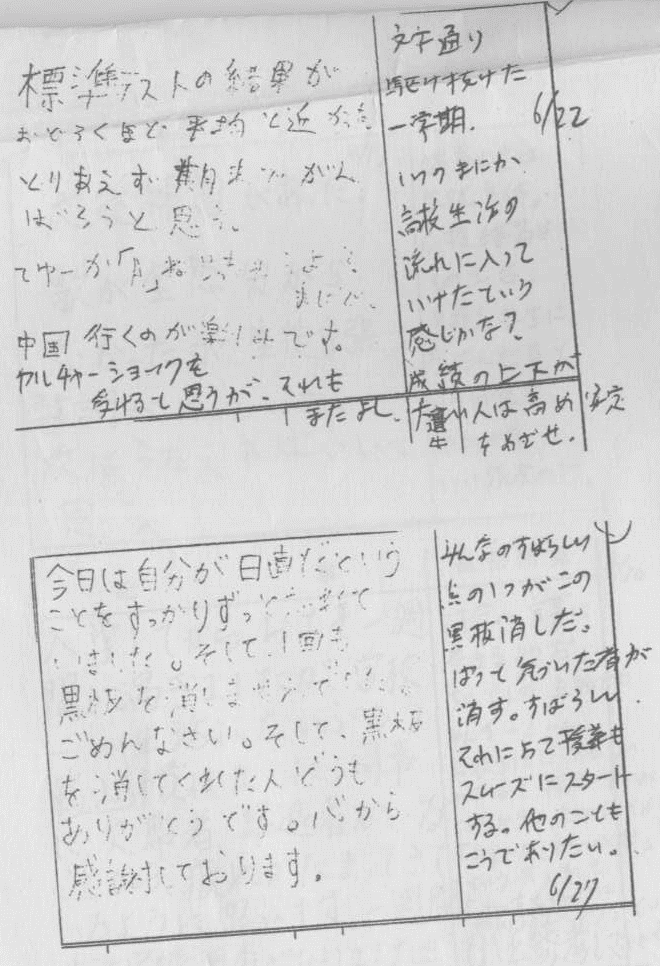 標準テストの結果が
おどろくほど平均と近かった
とりあえず期末までがん
ばろうと思う。
てゆーか「月」
中国行くのが楽しみです。
カルチャーショックを
受けると思うが、それも
またよし、
文字通り
駆け抜けた
一学期. 6/22
いつのまにか
高校生活の
流れに入って
いけたという
感じかな?
成績の上下が
大きい人は高め安定
をめざせ.
今日は自分が日直だという
ことをすっかりずっと忘れて
いました。そして、1回も
黒板を消しませんでした。
ごめんなさい。そして、黒板
を消してくれた人どうも
ありがとうです。心から
感謝しております。
みんなのすばらしい
点の1つがこの
黒板消しだ。
ぱっと気づいた者が
消す。すばらしい.
それによって授業も
スムーズにスタート
する。他のことも
こうでありたい。
6/27